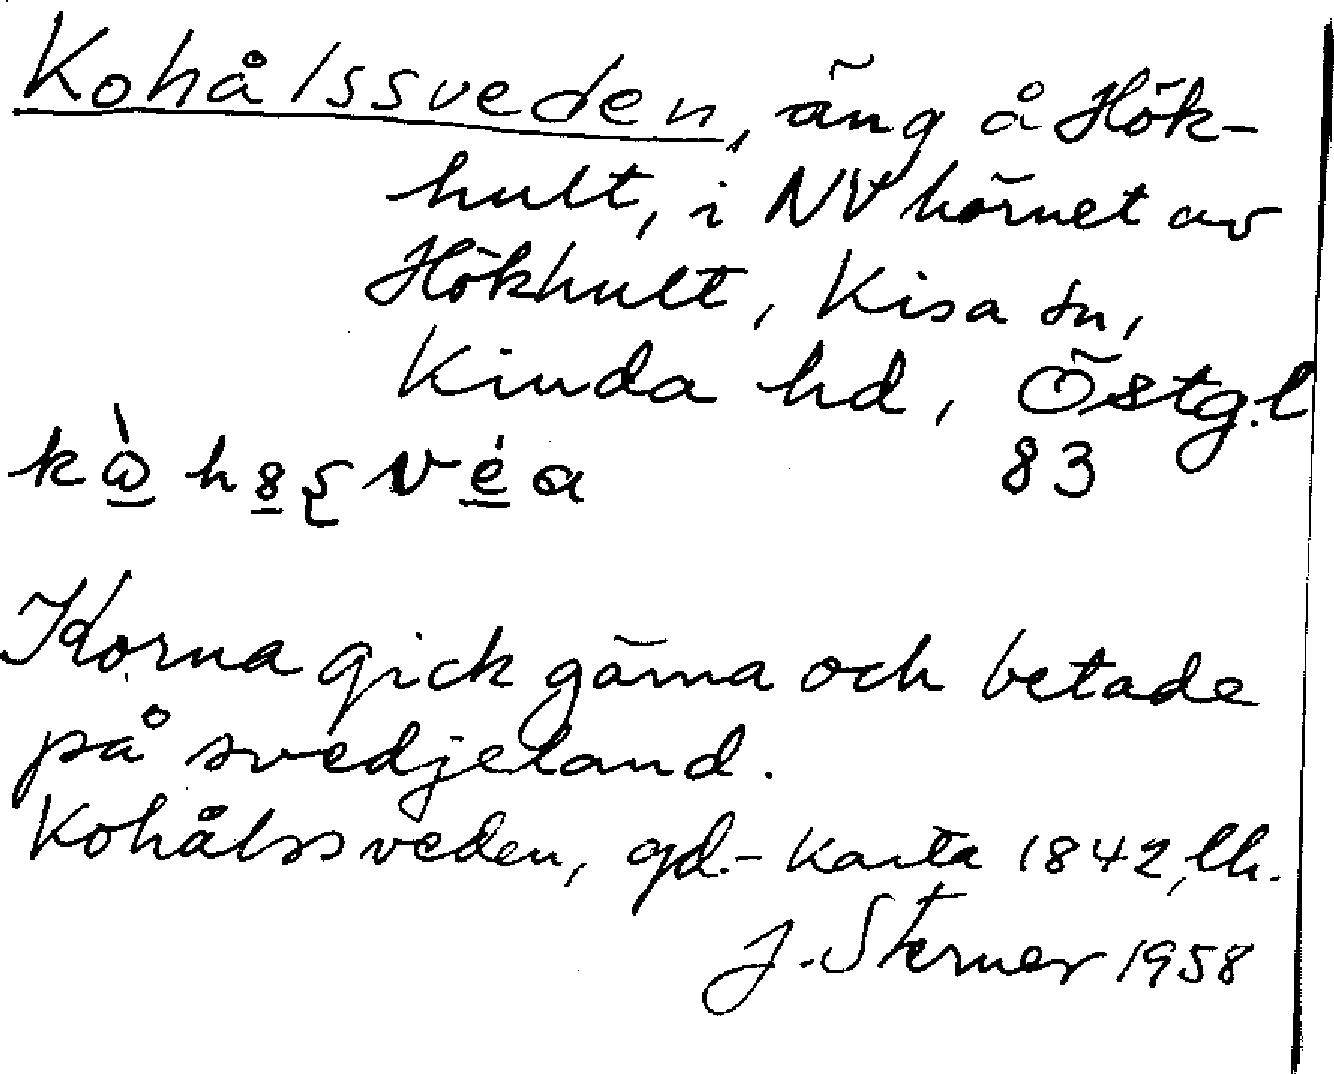 Kohålssveden, äng å Hök-
hult, i NV hörnet av
Hökhult, Kisa sn,
Kinda hd, Östg.l
83
Korna gick gärna och betade
på svedjeland.
Kohålssveden, gd.- Karta 1842, lh.
J. Sterner 1958